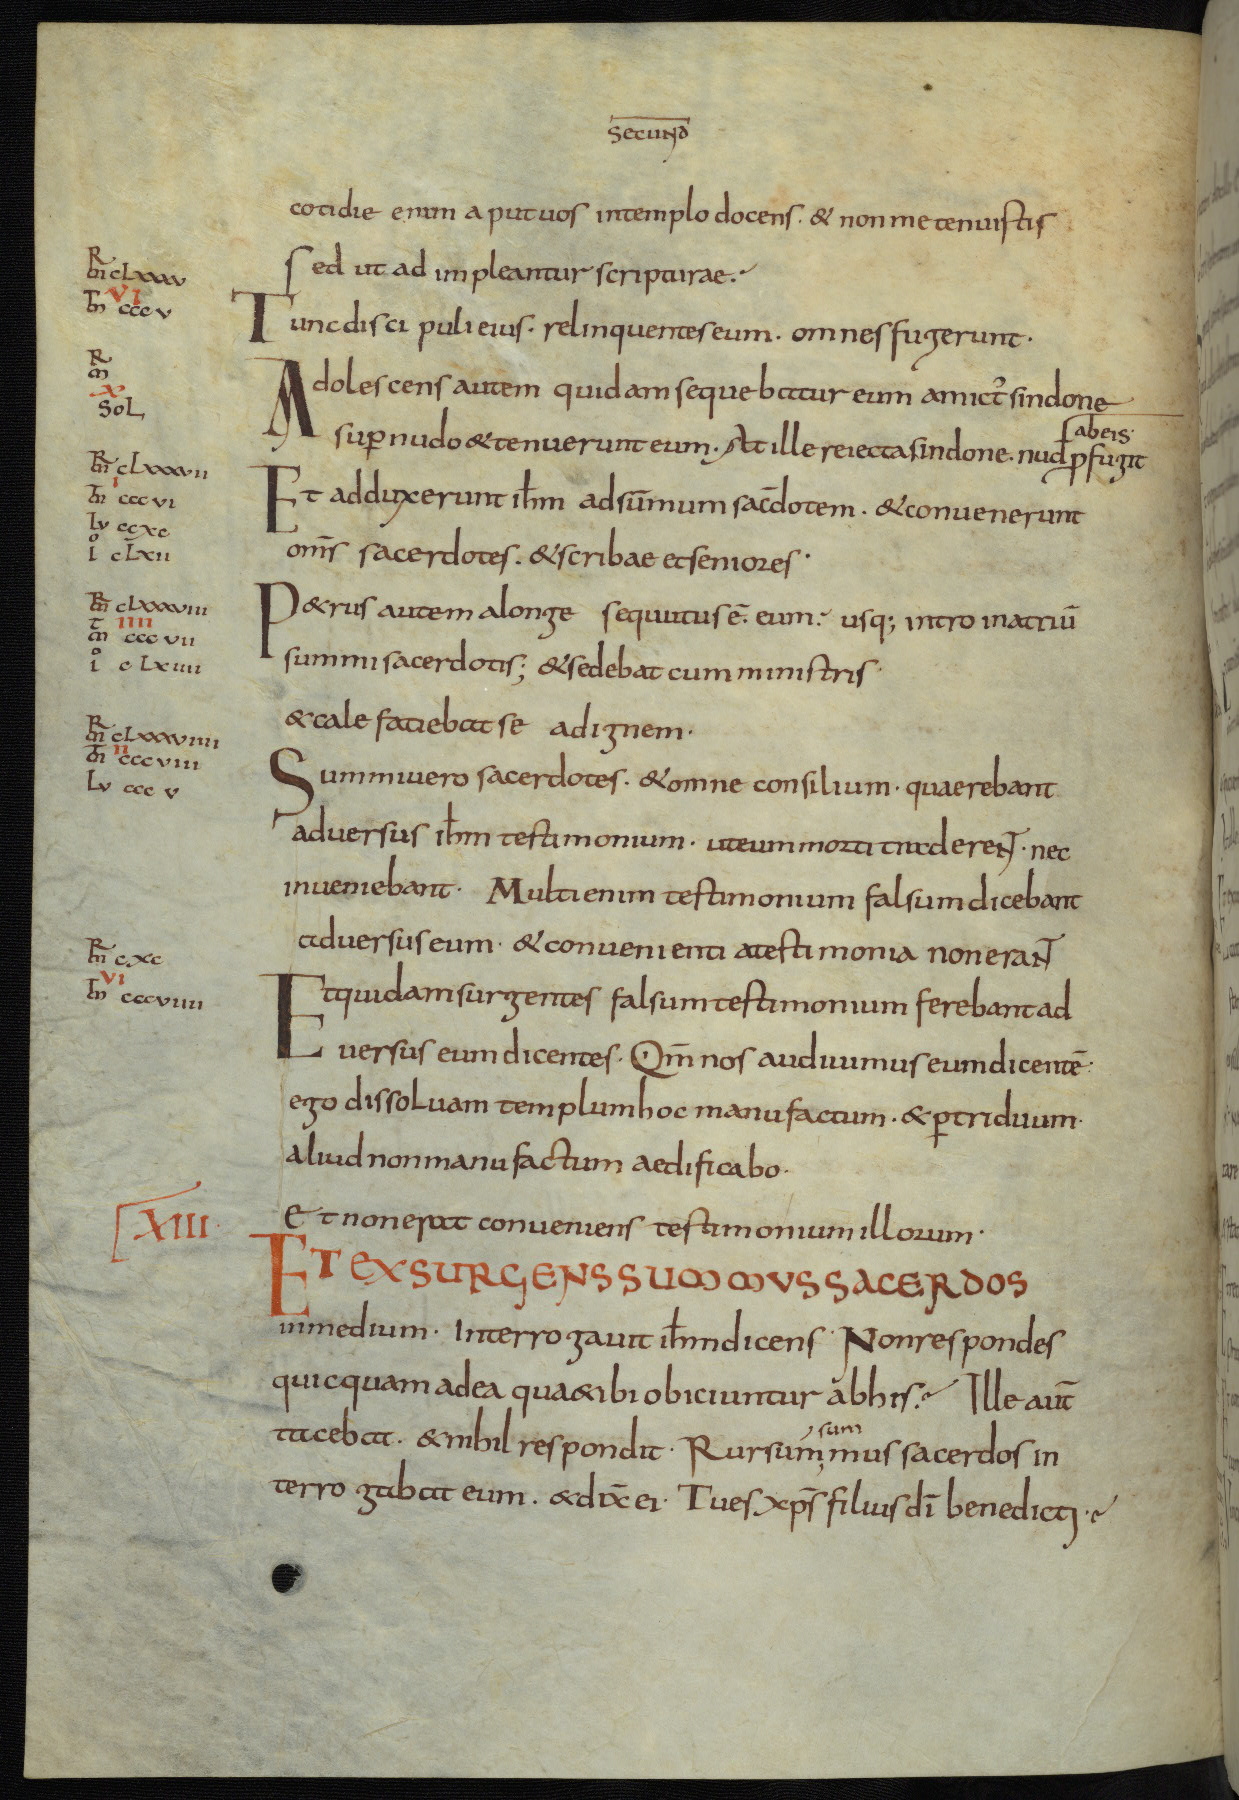 secund̄
cotidie enim aput uos in templo docens. & non me tenuistis
sed ut adimpleantur scripturae.
Tunc discipuli eius. relinquentes eum. omnes fugerunt.
Adolescens autem quidam sequebatur eum amict᷒ sindone
sup̱ nudo & tenuerunt eum. At ille reiecta sindone. nud p̱fugit
ab eis.
Et adduxerunt ih̄m ad sūmum sac̄dotem. & conuenerunt
om̄s sacerdotes. & scribae et seniores.
P&rus autem a longe sequutus ē. eum. usq; intro in atriū
summi sacerdotis; & sedebat cum ministris
& calefaciebat se ad ignem.
Summi uero sacerdotes. & omne consilium. quaerebant
aduersus ih̄m testimonium. ut eum morti traderent. nec
inueniebant. Multi enim testimonium falsum dicebant
aduersus eum. & conuenientia testimonia non erant
Et quidam surgentes falsum testimonium ferebant ad
uersus eum dicentes. Qm̄ nos audiuimus eum dicentē.
ego dissoluam templum hoc manufactum. & p̱ triduum.
aliud non manufactum aedificabo.
Et non erat conueniens testimonium illorum.
ET EXSURGENS SUMMUS SACERDOS
in medium. Interrogauit ih̄m dicens. Non respondes
quicquam ad ea quae tibi obiciuntur ab his. Ille aut̄
tacebat. & nihil respondit. Rursum mus sacerdos in
sum
terrogabat eum. & dix̄ ei. Tu es xp̄s filius dī benedicti.
R
m clxxxv
VI
m cccv
R
m
X
SOL
R
m clxxxvii
I
m cccvi
Lu ccxc
io clxii
R
m clxxxviii
IIII
mt cccvii
io clxiiii
R
m clxxxviiii
II
m cccviii
Lu cccv
R
m cxc
VI
m cccviiii
XIII